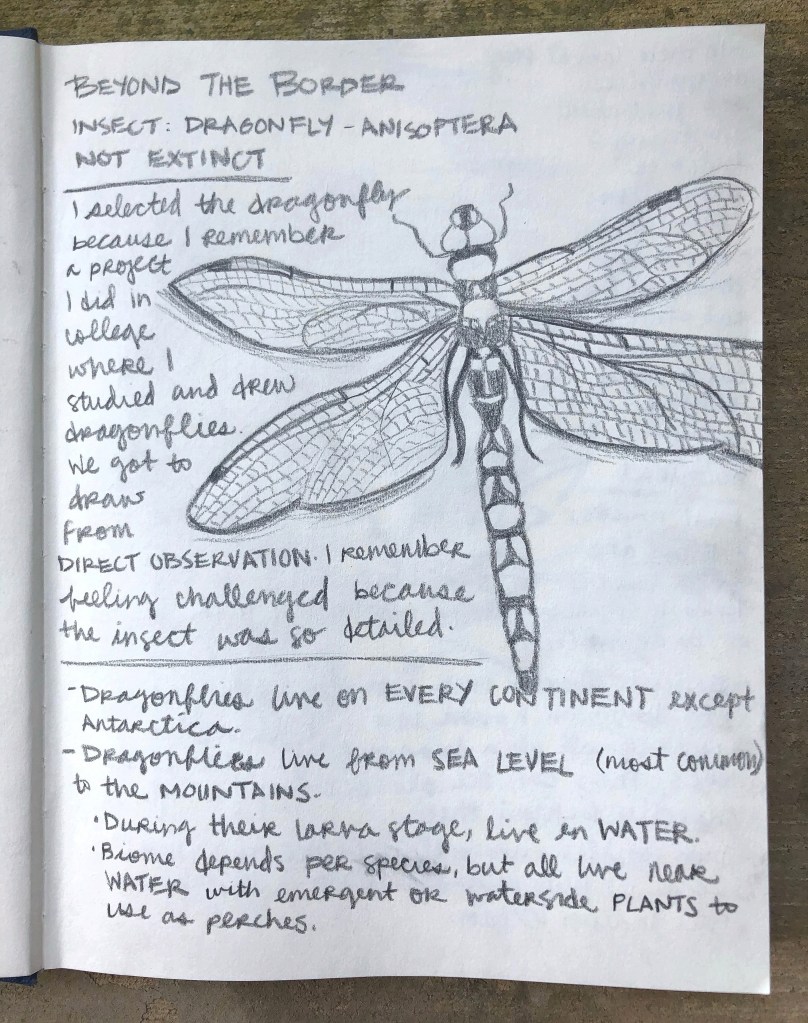 BEYOND THE BORDER
INSECT: DRAGONFLY - ANISOPTERA
NOT EXTINCT
I selected the dragonfly
because I remember
a project
I did in
college
where I
studied and drew
dragonflies.
We got to
draw
from
DIRECT OBSERVATION. I remember
feeling challenged because
the insect was so detailed.
- Dragonflies live on EVERY CONTINENT except
Antarctica.
- Dragonflies live from SEA LEVEL (most common)
to the MOUNTAINS.
• During their larva stage, live in WATER.
• Biome depends per species, but all live near
WATER with emergent or waterside PLANTS to
use as perches.